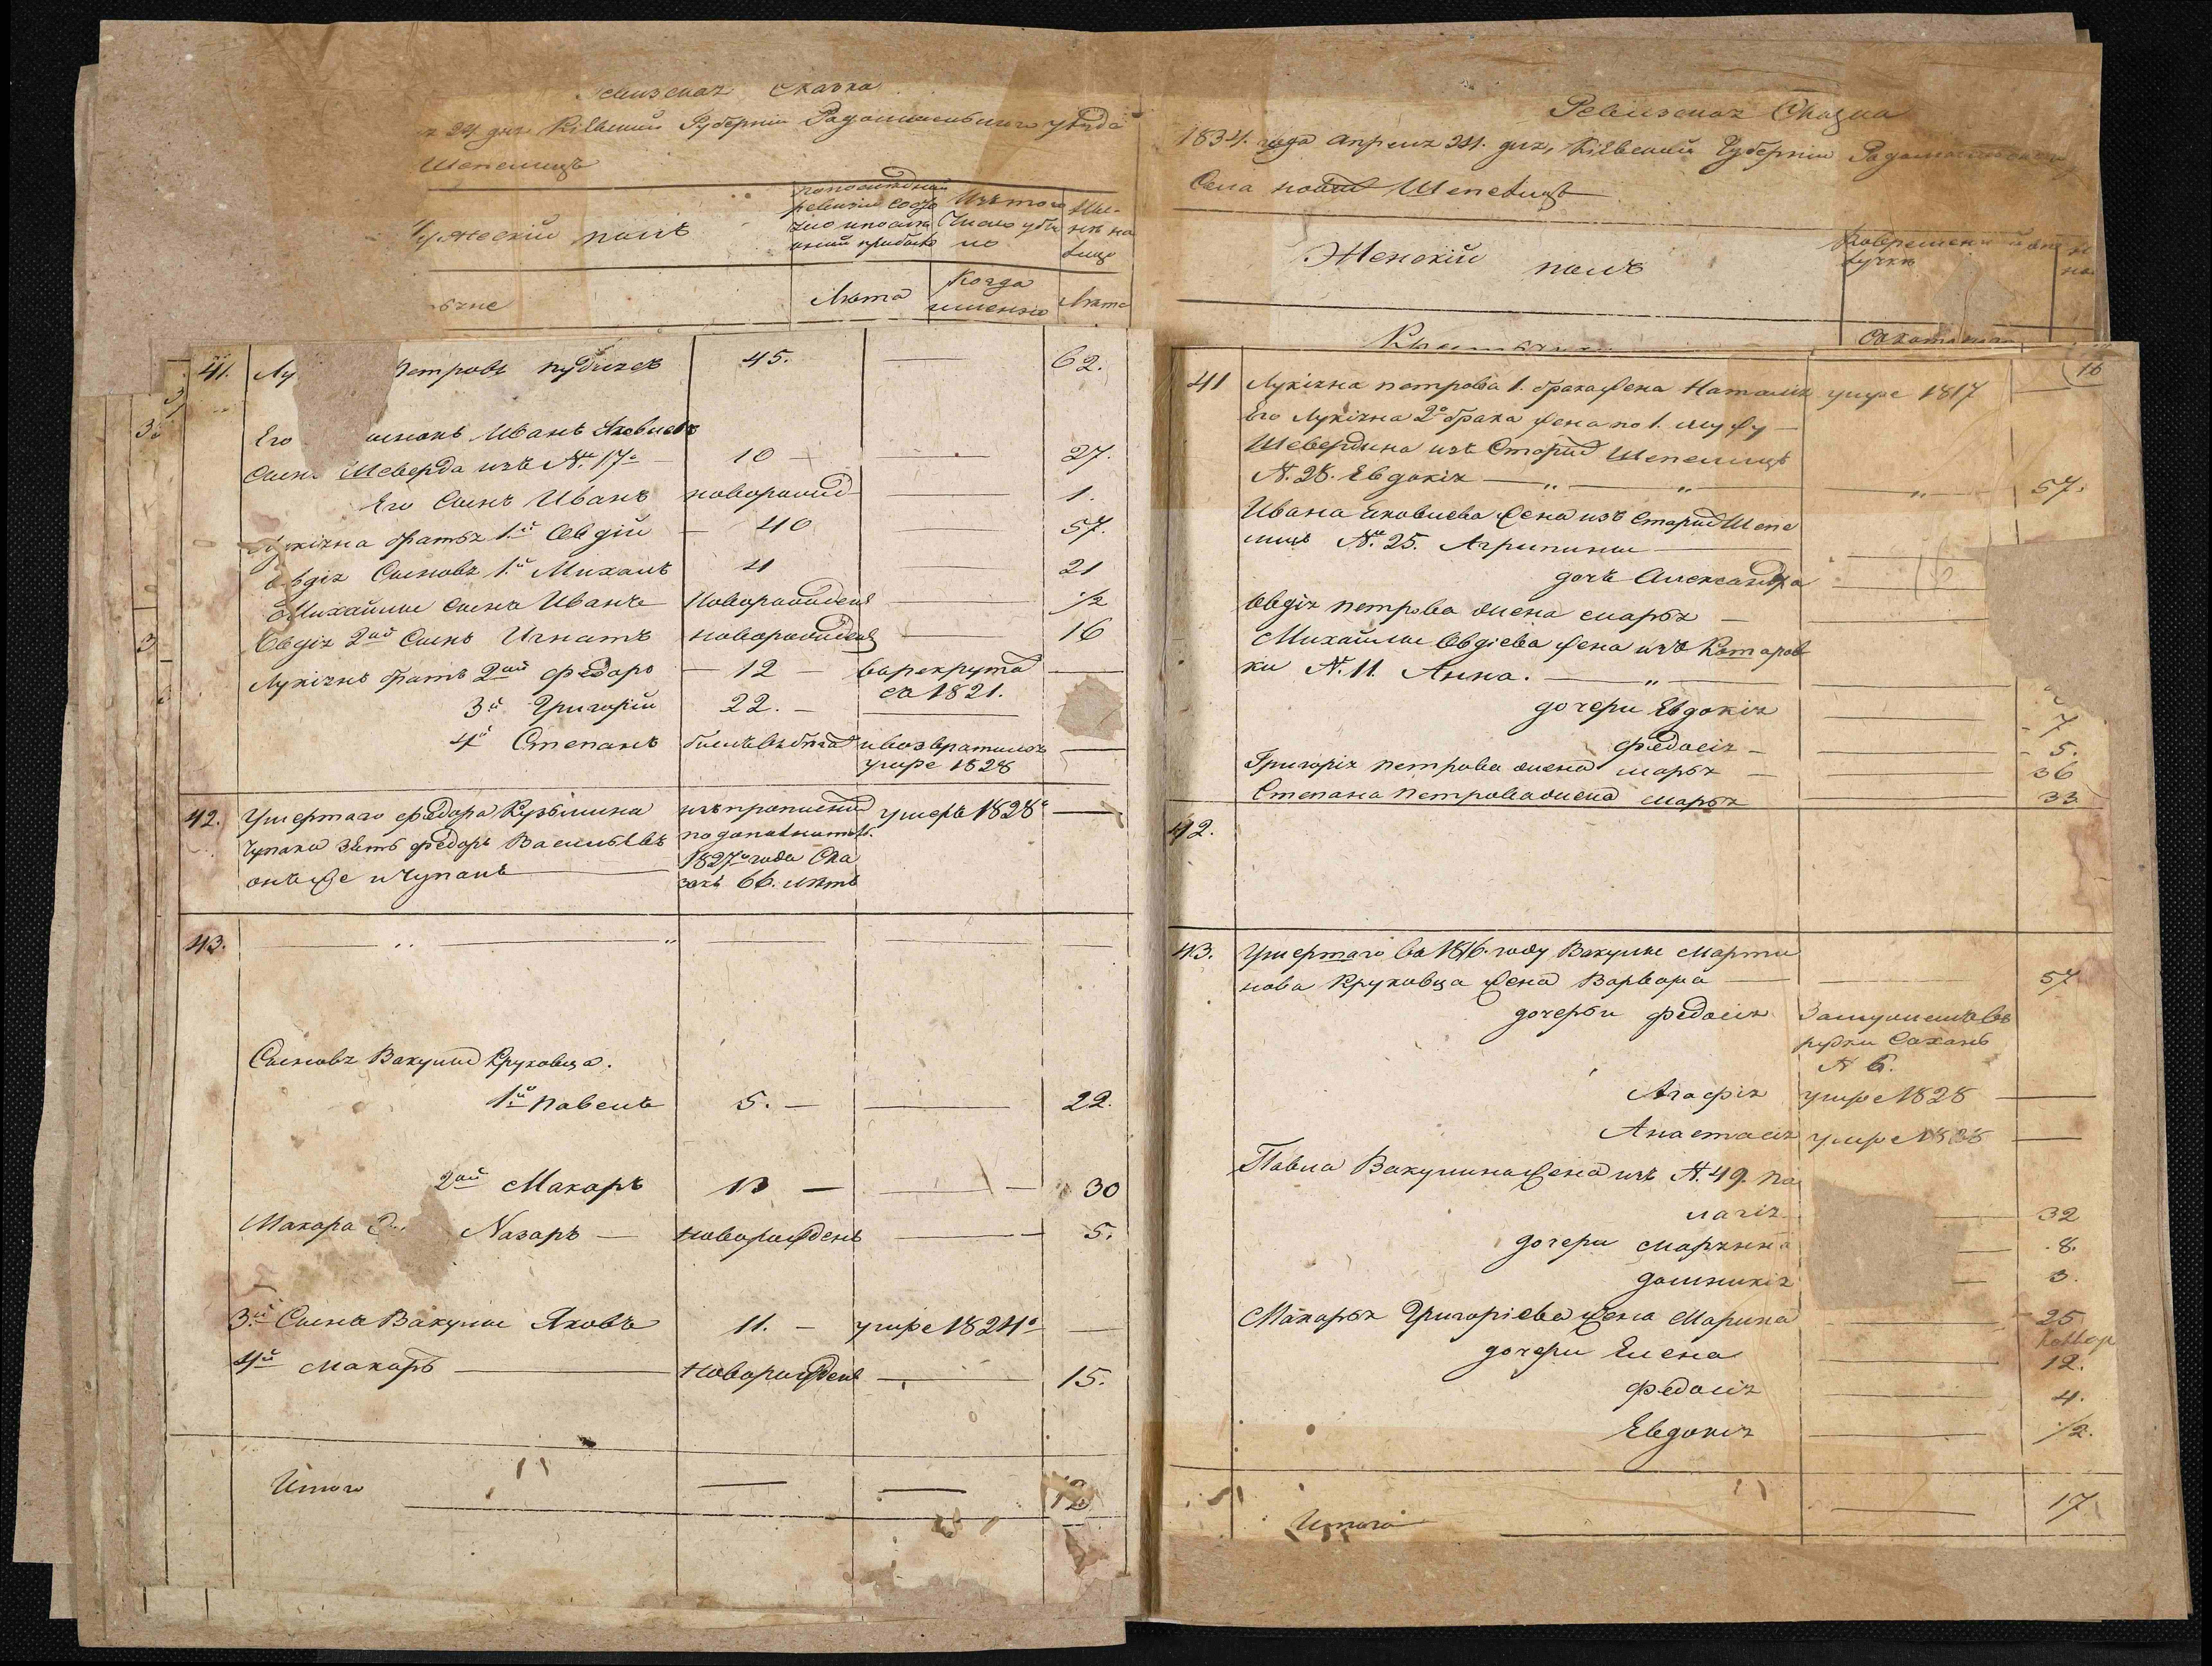 Ревизская Сказка
24 дня Кіевской Губерніи Радомысльского уѣзда
Шепелицъ
Мужескій полъ
по последней ревизіи состояло и после оной прибыло
Изъ того числа убыло
Ны-нѣ на лицо
Лѣта
Когда именно
Лѣта
41. Лу Петровъ 45. — 62.
Его Иванъ Яковлевъ
Сынъ Шеверда изъ №. 17 — 10 — 27.
Его Сынъ Иванъ новорожд — 1.
Лукіяна братья 1й Овдій — 40 57.
Овдія Сыновья 1й Михаилъ 4 21
Михайлы Сынъ Иванъ Новорожденъ — 1/2
Овдія 2ой Сынъ Игнатъ новорожденъ — 16
Лукіянъ братъ 2ой Федоръ — 12 — в рекруты —
въ 1821.
3й Григорій 22. —
4й Степанъ былъ въ бѣга и возвратился —
умре 1828
42. Умершаго Федора Кузьмина изъ прописныхъ умеръ 1828 —
Чупаки зять Федоръ Васильевъ по дополнит.
онъ же и Чупакъ 1827 года Ска
66. лѣтъ
43. —
Сыновья Вакулы Круковца.
1й Павелъ 5. — 22.
2ой Макаръ 13 — 30
Макара Назаръ — новорожденъ — 5.
3й Сынъ Вакулы Яковъ 11. — умре 1824 —
4й Макаръ — новорожденъ — 15.
Итого — — 12
Ревизская Сказка
1834. года Апреля 24. дня, Кіевской Губерніи Радомысльского
Села новый Шепелицъ
Женскій полъ
Во временной отлучкѣ
16
41 Лукіяна Петрова 1. брака жена Наталія умре 1817 —
Его Лукіяна 2о брака жена по 1. мужу —
Шевердина изъ Старыхъ Шепелицъ
№. 28. Евдокія — " — " — 57.
Ивана Яковлева жена изъ Старыхъ Шепе
лицъ №. 25. Агрипина —
дочь Александра
Овдія Петрова жена Марья —
Михайлы Овдіева жена изъ Котаров
ки №. 11. Анна. —
дочери Евдокія — 7
Федосія — 5.
Григорія Петрова жена Марья — 36
Степана Петрова жена Марья — 33
42.
43. Умершаго въ 1816. году Вакулы Марти
нова Круковца жена Варвара — 57
дочерьи Федосія Замужемъ въ
рудки Сахань
№ 6.
Агафія умре 1828 —
Анастасія умре —
Павла Вакулина жена изъ №. 49. Па
лагія — 32
дочери Маріянна — 8.
Домникія — 3.
Макарья Григоріева жена Марина — 25
дочери Елена — 12.
Федосія — 4.
Евдокія — 1/2.
Итого — 17